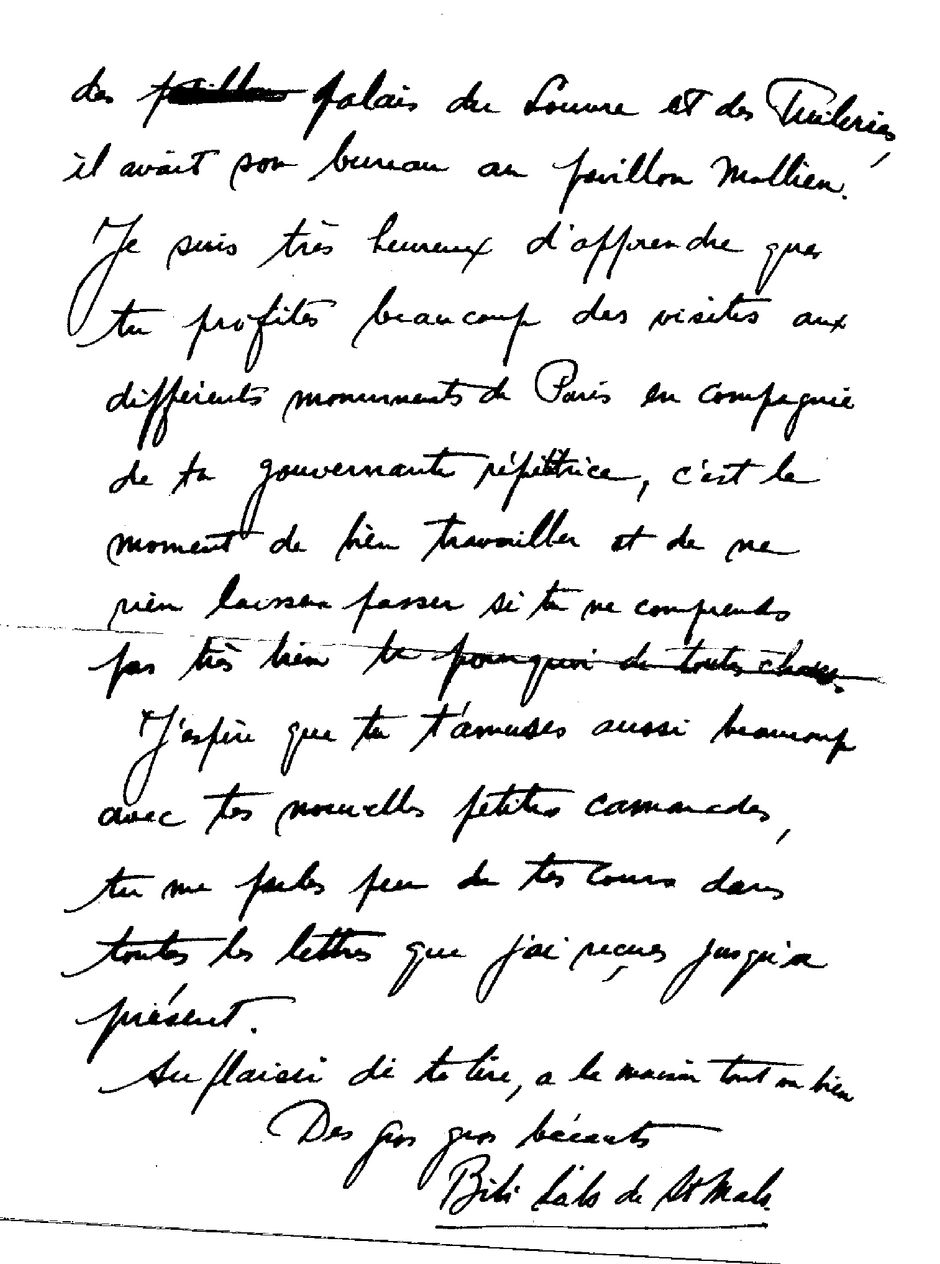 des pavillons palais du Louvre et des Tuileries,
il avait son bureau au pavillon Mollien.
Je suis très heureux d'apprendre que
tu profites beaucoup des visites aux
différents monuments de Paris en compagnie
de ta gouvernante répétitrice, c'est le
moment de bien travailler et de ne
rien laisser passer si tu ne comprends
pas très bien le pourquoi de toutes choses.
J'espère que tu t'amuses aussi beaucoup
avec tes nouvelles petites camarades,
tu me parles peu de tes cours dans
toutes les lettres que j'ai reçues jusqu'a
présent.
Au plaisir de te lire, a la maison tout va bien
Des gros gros bécants
Bibi de St Malo.